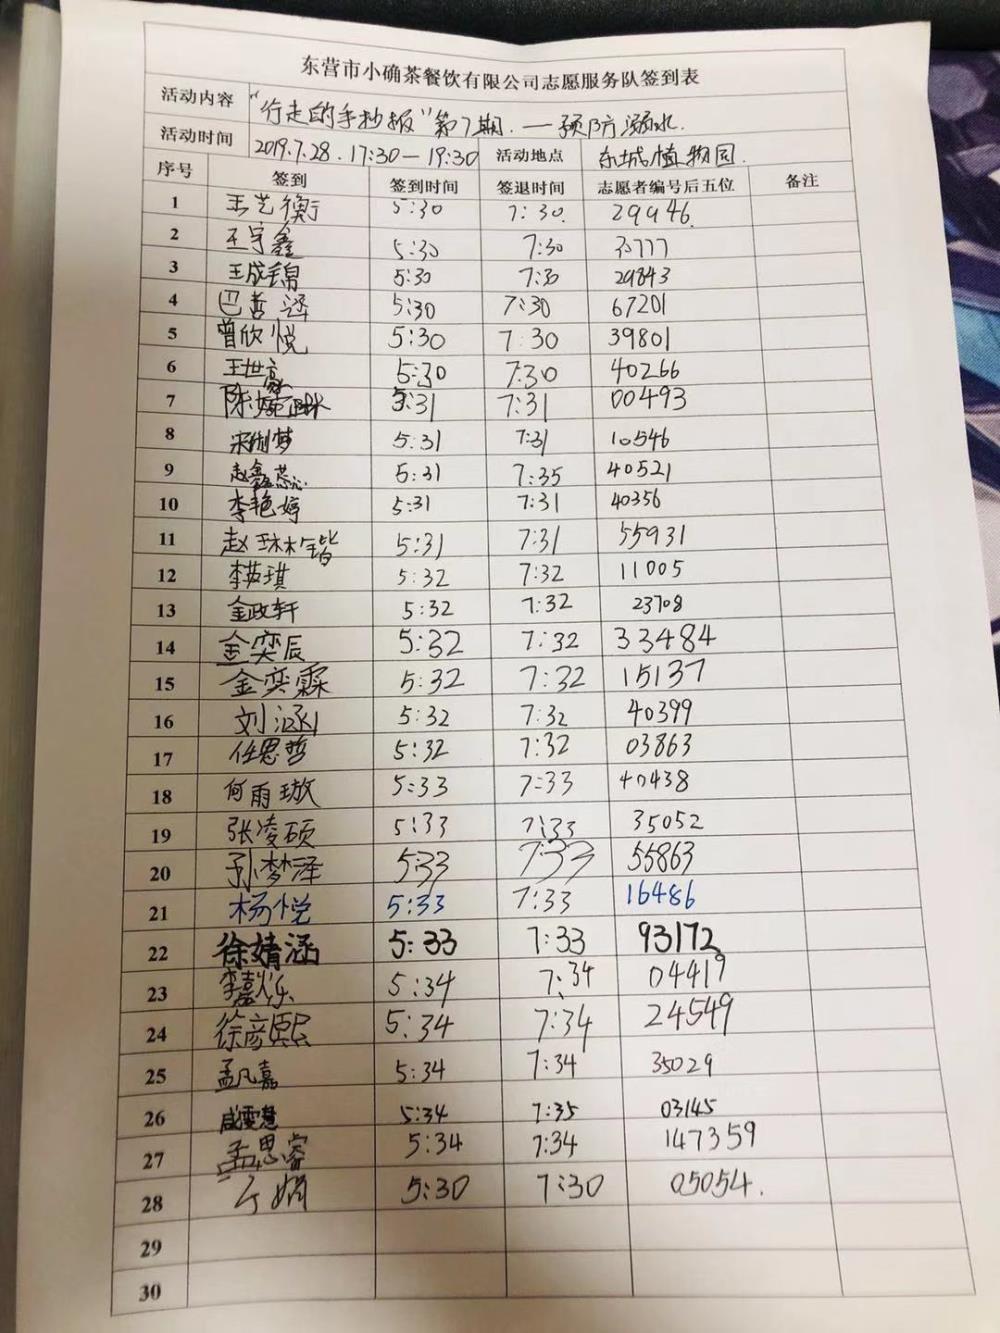 东营市小确茶餐饮有限公司志愿服务队签到表
活动内容 “行走的手抄报”第7期.—预防溺水.
活动时间 2019.7.28.17:30—19:30 活动地点 东城植物园.
序号 签到 签到时间 签退时间 志愿者编号后五位 备注
1 王艺衡 5:30 7:30. 29946.
2 王宇鑫 5:30 7:30 30777
3 王成锦 5:30 7:30 29843
4 巴哲涵 5:30 7:30 67201
5 曾欣悦 5:30 7:30 39801
6 王世豪 5:30 7:30 40266
7 陈婉琳 5:31 7:31 00493
8 宋梦 5:31 7:31 10546
9 赵鑫蕊 5:31 7:35 40521
10 李艳婷 5:31 7:31 40356
11 赵琳锴 5:31 7:31 55931
12 李英琪 5:32 7:32 11005
13 金政轩 5:32 7:32 23708
14 金奕辰 5:32 7:32 33484
15 金奕霖 5:32 7:32 15137
16 刘涵 5:32 7:32 40399
17 任思哲 5:32 7:32 03863
18 何雨璈 5:33 7:33 40438
19 张凌硕 5:33 7:33 35052
20 孙梦泽 5:33 7:33 55863
21 杨悦 5:33 7:33 16486
22 徐婧涵 5:33 7:33 93172
23 李嘉烁 5:34 7:34 04419
24 徐彦熙 5:34 7:34 24549
25 孟凡嘉 5:34 7:34 35029
26 咸雯慧 5:34 7:35 03145
27 孟思睿 5:34 7:34 147359
28 丁娟 5:30 7:30 05054.
29
30